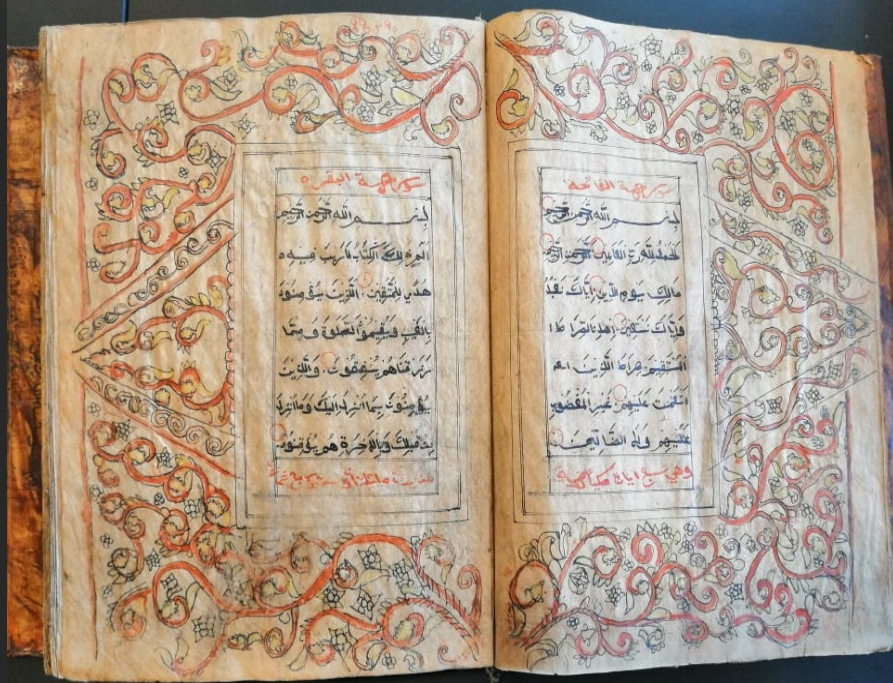 الفاتحة
بِسْمِ اللّٰهِ الرَّحْمٰنِ الرَّحِيْمِ
اَلْحَمْدُ لِلّٰهِ رَبِّ الْعَالَمِيْنَ الرَّحْمٰنِ الرَّحِيْمِ
مَالِكِ يَوْمِ الدِّيْنِ اِيَّاكَ نَعْبُدُ
وَاِيَّاكَ نَسْتَعِيْنُ اِهْدِنَا الصِّرَاطَ ا
الْمُسْتَقِيْمَ صِرَاطَ الَّذِيْنَ
اَنْعَمْتَ عَلَيْهِمْ غَيْرِ الْمَغْضُوْبِ
عَلَيْهِمْ وَلَا الضَّالِّيْنَ
وهي سبع ايات
البقره
بِسْمِ اللّٰهِ الرَّحْمٰنِ الرَّحِيْمِ
الم ذٰلِكَ الْكِتَابُ لَا رَيْبَ فِيْهِ
هُدًى لِّلْمُتَّقِيْنَ الَّذِيْنَ يُؤْمِنُوْنَ
بِالْغَيْبِ وَيُقِيْمُوْنَ الصَّلٰوةَ وَمِمَّا
رَزَقْنَاهُمْ يُنْفِقُوْنَ وَالَّذِيْنَ
يُؤْمِنُوْنَ بِمَا اُنْزِلَ اِلَيْكَ وَمَا اُنْزِلَ
مِنْ قَبْلِكَ وَبِالْاٰخِرَةِ هُمْ يُوْقِنُوْنَ